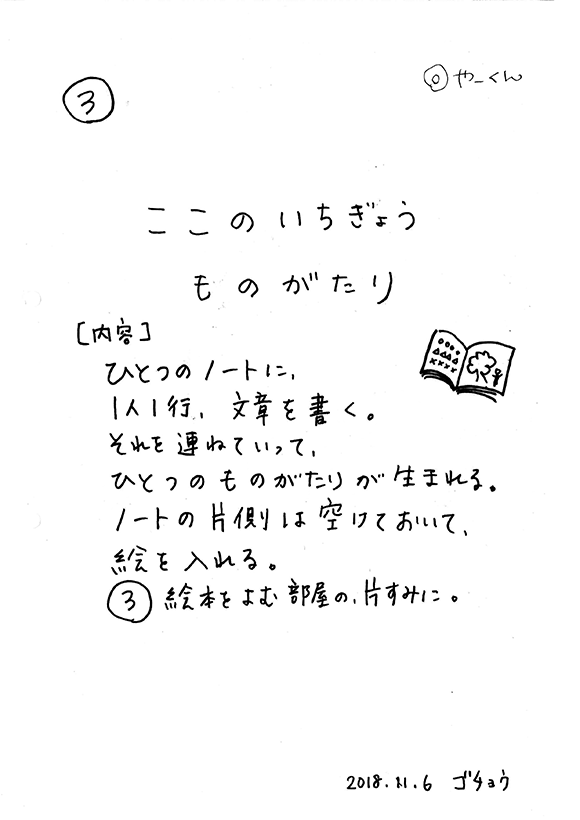 ③
◎やーくん
ここのいちぎょう
ものがたり
[内容]
ひとつのノートに、
1人1行、文章を書く。
それを連ねていって、
ひとつのものがたりが生まれる。
ノートの片側は空けておいて、
絵を入れる。
③ 絵本をよむ部屋の、片すみに。
2018.11.6 ゴチョウ